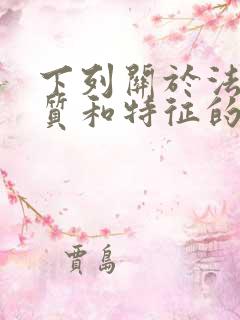 下列關於法
質和特征的
賈島